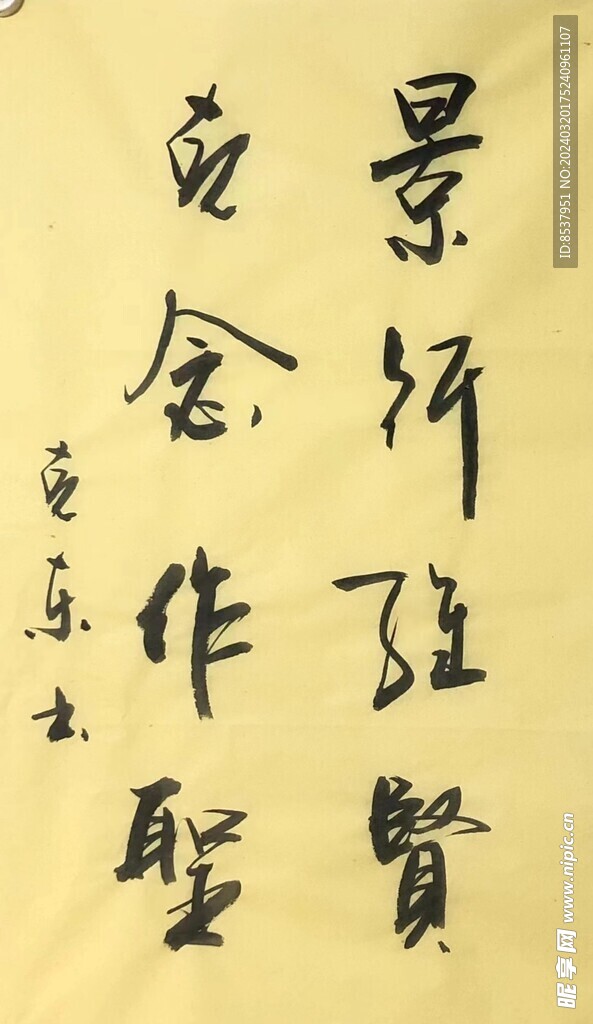 景行維賢
克念作聖
克东书
ID:8537951 NO:20240320175240961107
昵享网 www.nipic.cn